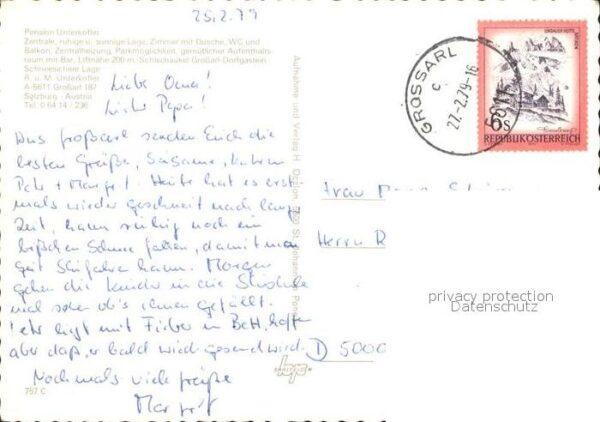 25.2.79
Pension Unterkofler
Zentrale, ruhige u. sonnige Lage, Zimmer mit Dusche, WC und
Balkon, Zentralheizung, Parkmöglichkeit, gemütlicher Aufenthalts-
raum mit Bar, Liftnähe 200 m. Schischaukel Großarl-Dorfgastein
Schneesichere Lage
R. u. M. Unterkofler
A-5611 Großarl 187
Salzburg - Austria
Tel. 0 64 14 / 236
Liebe Oma!
Liebe Papa!
Aus Großarl senden Euch die
besten Grüße, Susanne,
Pete + Margret. Heute hat es erst
mals wieder geschneit nach lang
Zeit, kann ruhig noch ein
bißchen Schnee fallen, damit man
gut Skifahren kann. Morgen
gehen die Kinder in die Skischule
mal sehen ob's ihnen gefällt.
liegt mit Fieber im Bett, hoffe
aber daß er bald wieder gesund wird.
Nochmals viele Grüße
Margrit
757 C
Aufnahme und Verlag H.
GROSSARL
c
27.-2.79-16
5611
LINDAUER HÜTTE
6s
REPUBLIK ÖSTERREICH
Frau
Herrn R
D 5000
privacy protection
Datenschutz